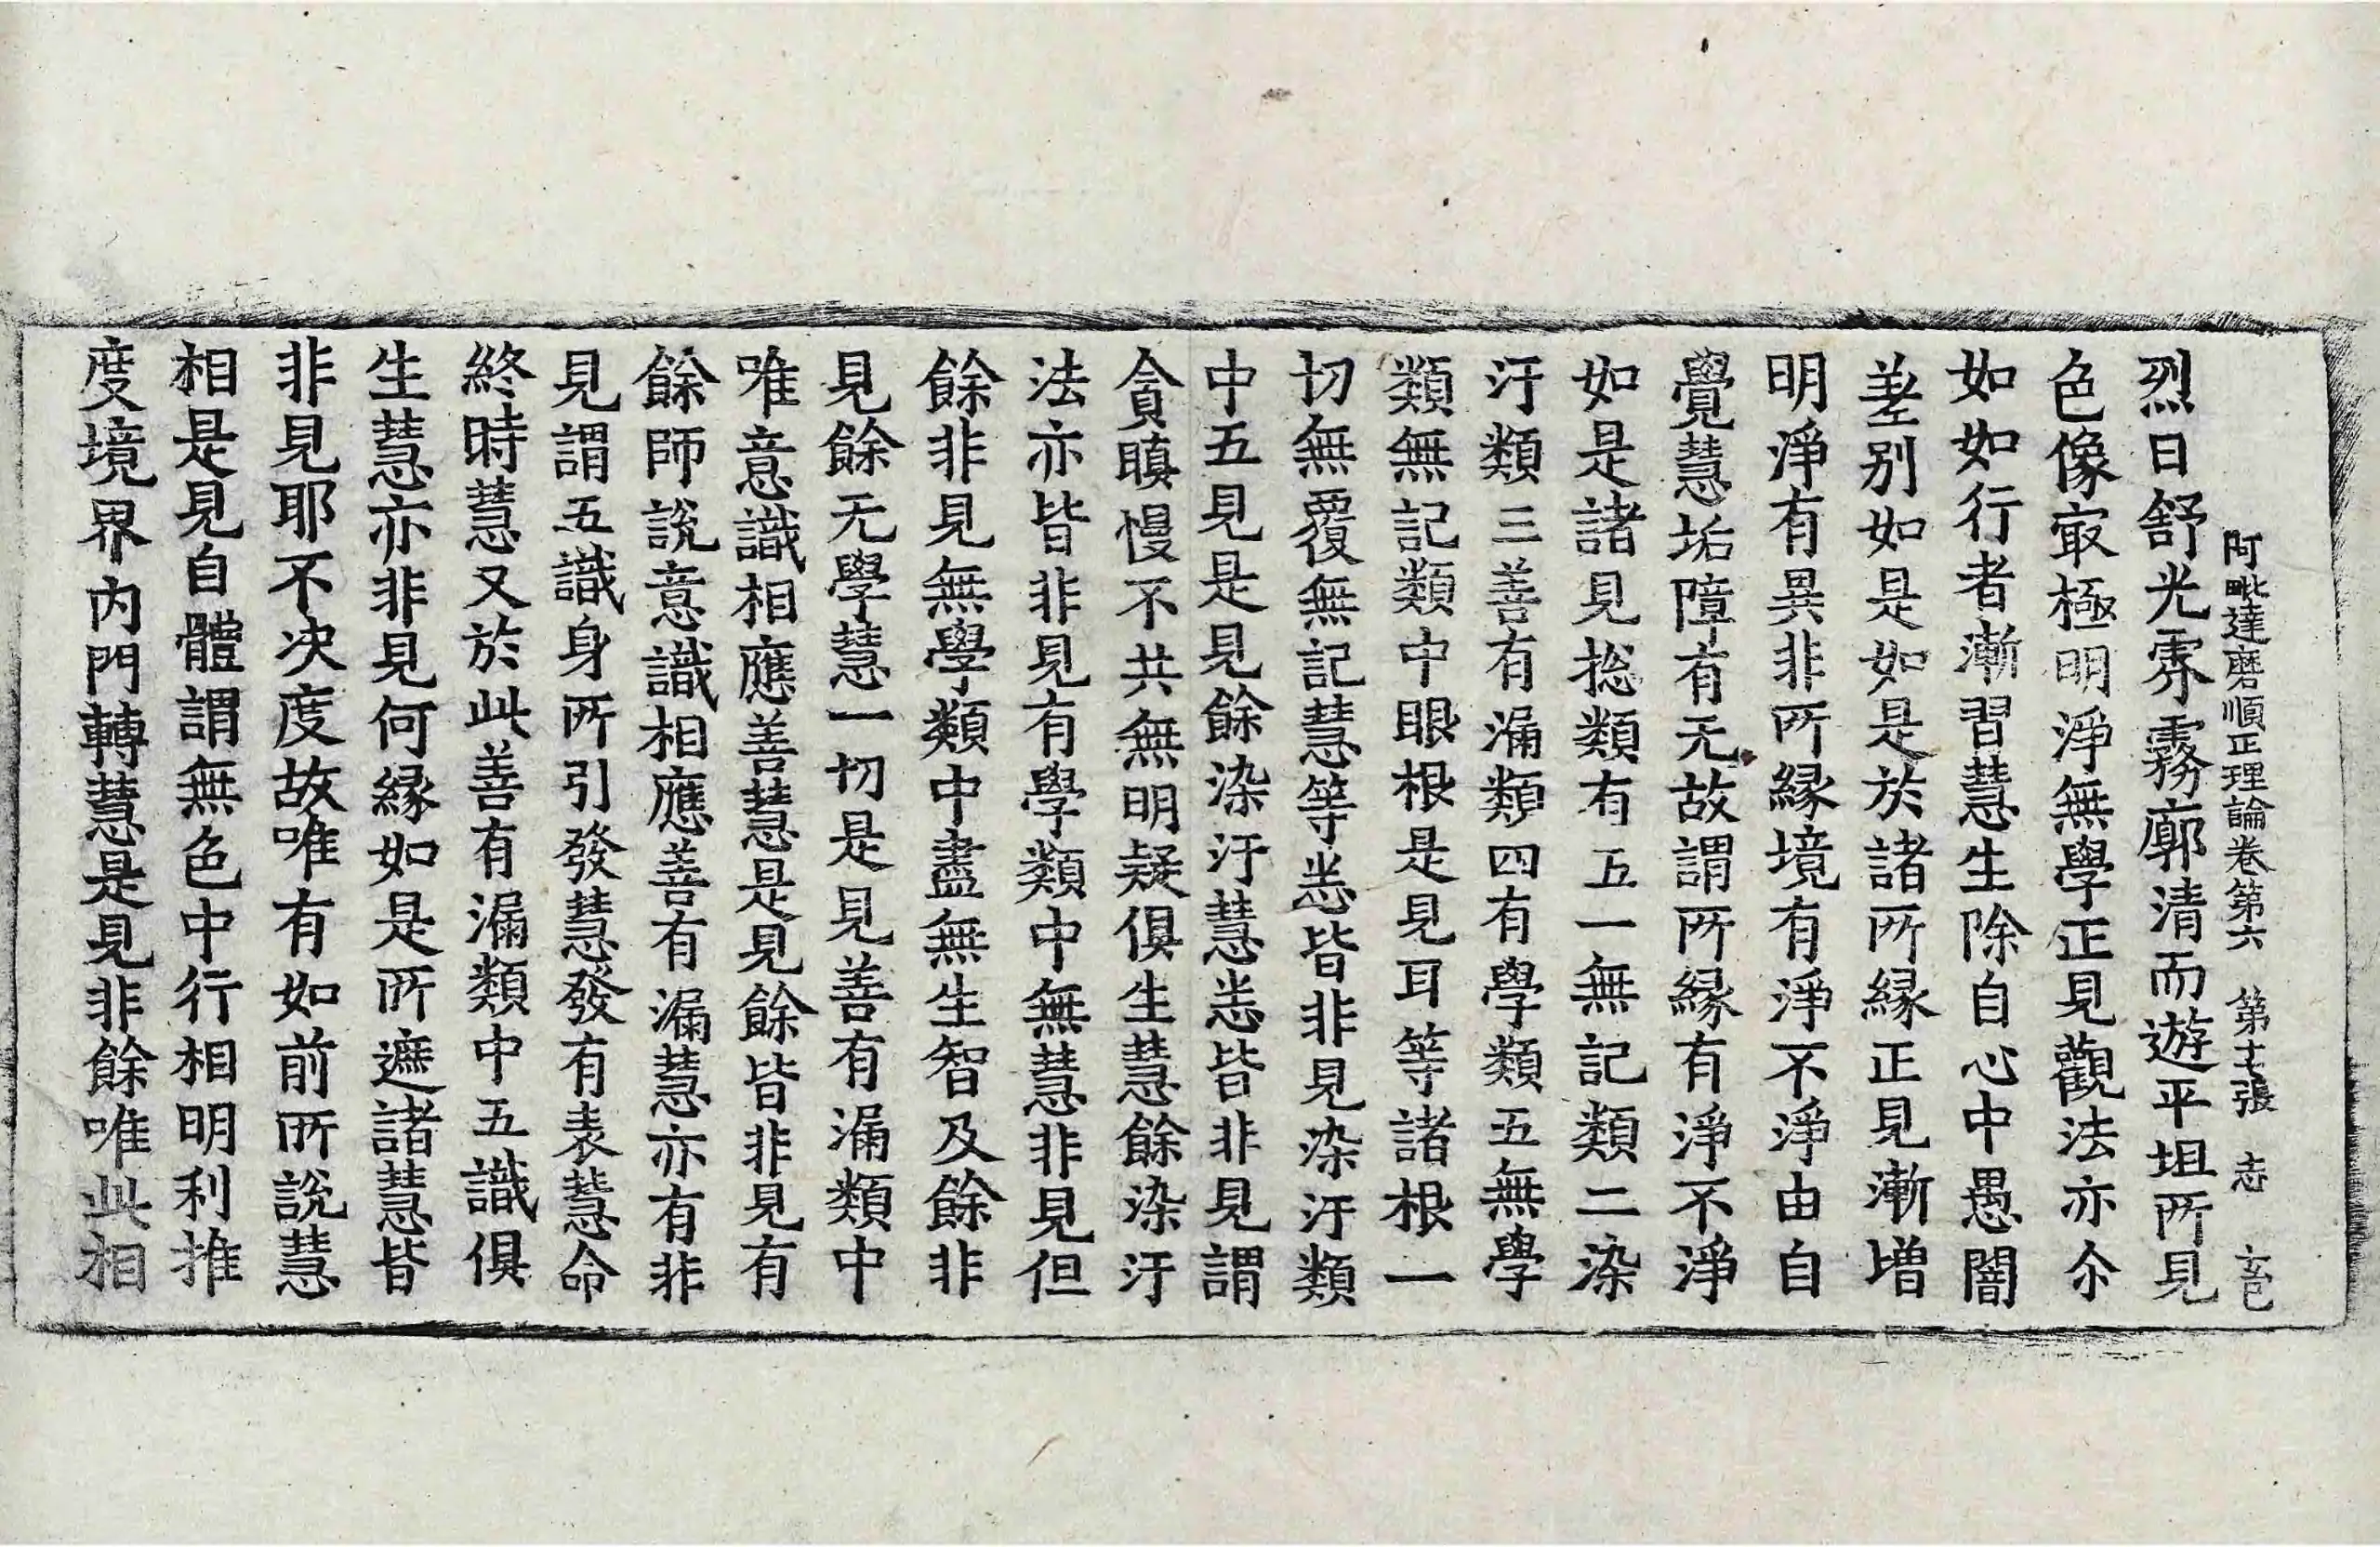 阿毗達磨順正理論卷第六　第十七張　志
烈日舒光雰霧廓清而遊平坦所見
色像㝡極明淨無學正見觀法亦尒
如如行者漸習慧生除自心中愚闇
差别如是如是於諸所縁正見漸增
明淨有異非所縁境有淨不淨由自
覺慧垢障有无故謂所縁有淨不淨
如是諸見捴類有五一無記類二染
汙類三善有漏類四有學類五無學
類無記類中眼根是見耳等諸根一
切無覆無記慧等悉皆非見染汙類
中五見是見餘染汙慧悉皆非見謂
貪瞋慢不共無明疑俱生慧餘染汙
法亦皆非見有學類中無慧非見但
餘非見無學類中盡無生智及餘非
見餘无學慧一切是見善有漏類中
唯意識相應善慧是見餘皆非見有
餘師説意識相應善有漏慧亦有非
見謂五識身所引發慧發有表慧命
終時慧又於此善有漏類中五識俱
生慧亦非見何縁如是所遮諸慧皆
非見耶不决度故唯有如前所說慧
相是見自體謂無色中行相明利推
度境界内門轉慧是見非餘唯此相